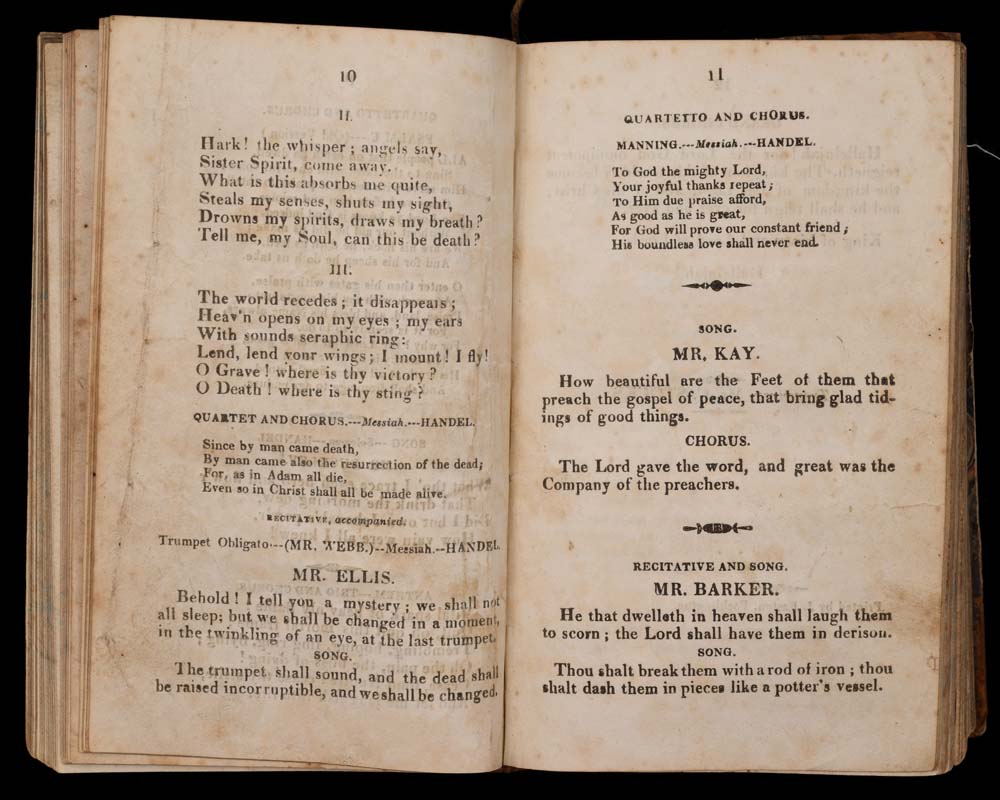 10
II.
Hark! the whisper; angels say,
Sister Spirit, come away.
What is this absorbs me quite,
Steals my senses, shuts my sight,
Drowns my spirits, draws my breath?
Tell me, my Soul, can this be death?
III.
The world recedes; it disappears;
Heav'n opens on my eyes; my ears
With sounds seraphic ring:
Lend, lend your wings; I mount! I fly!
O Grave! where is thy victory?
O Death! where is thy sting?
QUARTET AND CHORUS.---Messiah.---HANDEL.
Since by man came death,
By man came also the resurrection of the dead;
For, as in Adam all die,
Even so in Christ shall all be made alive.
RECITATIVE, accompanied.
Trumpet Obligato---(MR. WEBB.)--Messiah.--HANDEL.
MR. ELLIS.
Behold! I tell you a mystery; we shall not
all sleep; but we shall be changed in a moment,
in the twinkling of an eye, at the last trumpet.
SONG.
The trumpet shall sound, and the dead shall
be raised incorruptible, and we shall be changed.
11
QUARTETTO AND CHORUS.
MANNING.---Messiah.---HANDEL.
To God the mighty Lord,
Your joyful thanks repeat;
To Him due praise afford,
As good as he is great,
For God will prove our constant friend;
His boundless love shall never end.
SONG.
MR. KAY.
How beautiful are the Feet of them that
preach the gospel of peace, that bring glad tid-
ings of good things.
CHORUS.
The Lord gave the word, and great was the
Company of the preachers.
RECITATIVE AND SONG.
MR. BARKER.
He that dwelleth in heaven shall laugh them
to scorn; the Lord shall have them in derison.
SONG.
Thou shalt break them with a rod of iron; thou
shalt dash them in pieces like a potter's vessel.